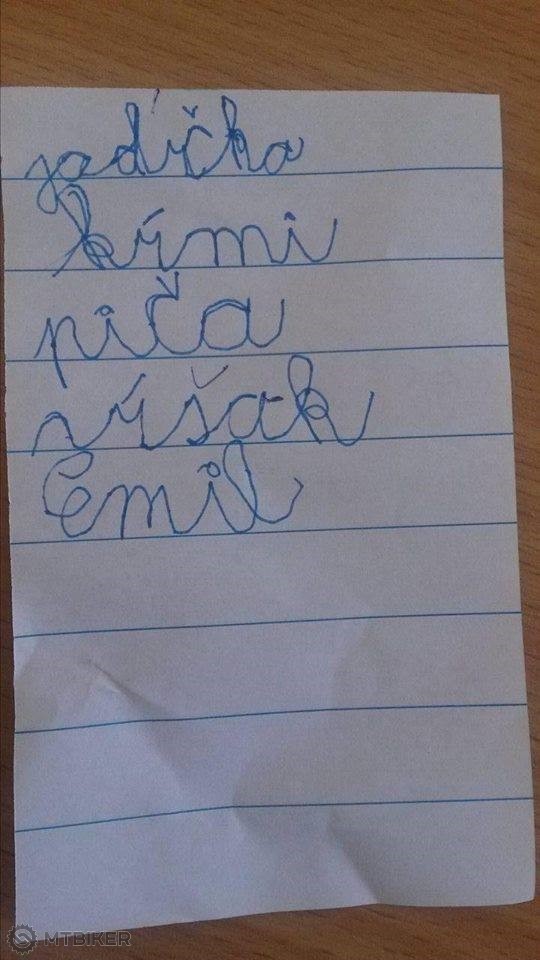 jadŕčka
kŕmi
piča
vŕšak
Emil
MTBIKER